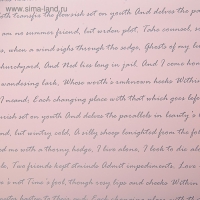 © www.sima-land.ru
doth transfix the flourish set on youth And delves the pa
I am no summer friend, but winter plot. Take counsel, s
s, when a wind sighs through the sedge, Ghosts of my bu
churchyard, And Ned lies long in jail, And I come home
wandering bark, Whose worth's unknown heeds Within
I mind; Each changing place with that which goes befo
ourish set on youth And delves the parallels in beauty's
nd, but wintry cold, A silly sheep benighted from the fol
nd me with a thorny hedge, I live alone, I look to die alo
le, Two friends kept stminds Admit impediments. Love
e is not Time's fool, though rosy lips and cheeks Within